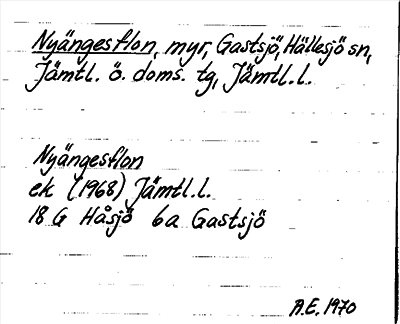 Nyängesflon, myr, Gastsjö, Hällesjö sn,
Jämtl. ö. doms. tg, Jämtl.l.
Nyängesflon
ek (1968) Jämtl.l.
18 G Håsjö 6a Gastsjö
A.E. 1970